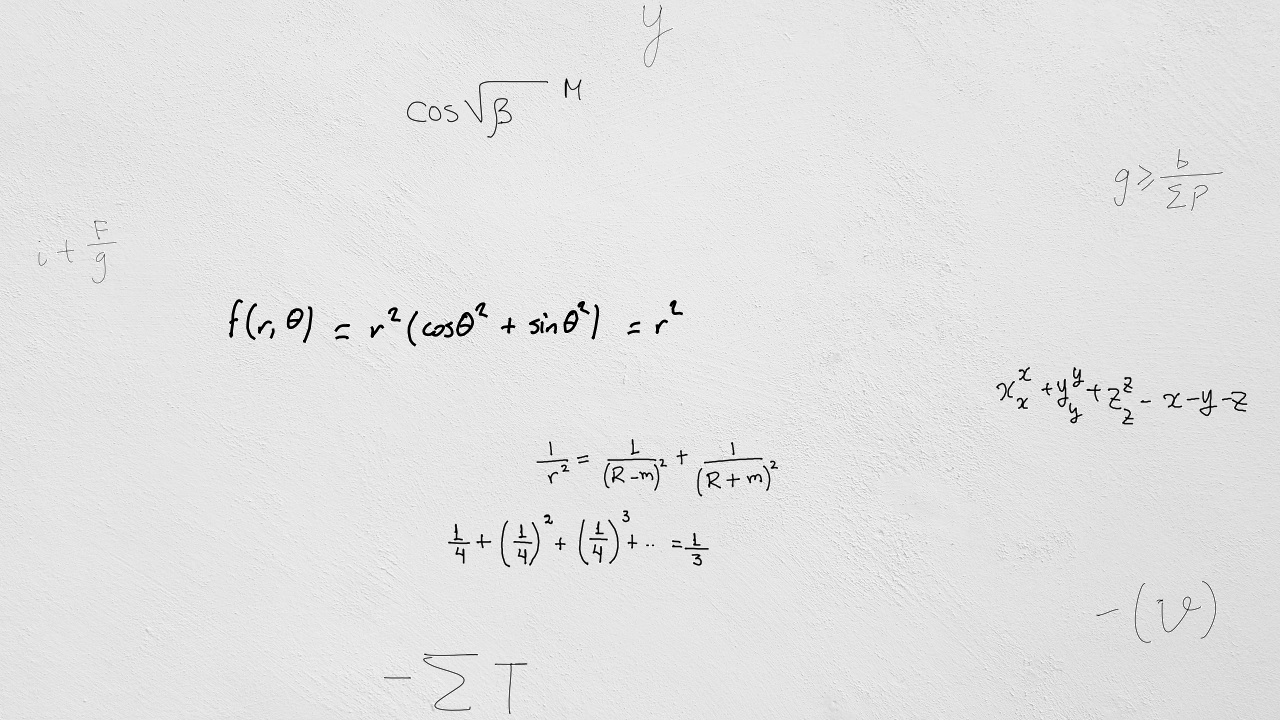 y
cos√β ᴹ
g ≥ b/∑p
i + F/g
f(r, θ) = r²(cosθ² + sinθ²) = r²
x_x^x + y_y^y + z_z^z - x - y - z
1/r² = 1/(R-m)² + 1/(R+m)²
1/4 + (1/4)² + (1/4)³ + .. = 1/3
-(v)
-∑T